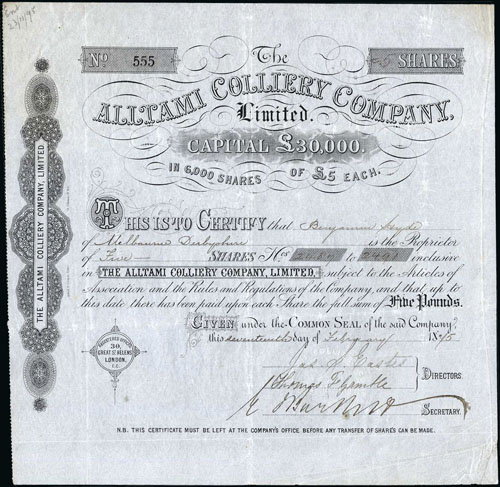 23/11/95
No 555
5 SHARES
The
ALLTAMI COLLIERY COMPANY,
Limited.
CAPITAL £30,000.
IN 6,000 SHARES OF £5 EACH.
THE ALLTAMI COLLIERY COMPANY, LIMITED.
THIS IS TO CERTIFY that Benjamin
of Melbourne Derbyshire is the Proprietor
of Five SHARES Nos to inclusive
in THE ALLTAMI COLLIERY COMPANY, LIMITED. subject to the Articles of
Association and the Rules and Regulations of the Company, and that up to
this date there has been paid upon each Share the full sum of Five Pounds.
GIVEN under the COMMON SEAL of the said Company,
this seventeenth day of February 1875
REGISTERED OFFICE
30,
GREAT ST HELENS
LONDON.
E.C.
DIRECTORS.
Thomas
SECRETARY.
N.B. THIS CERTIFICATE MUST BE LEFT AT THE COMPANY'S OFFICE BEFORE ANY TRANSFER OF SHARES CAN BE MADE.